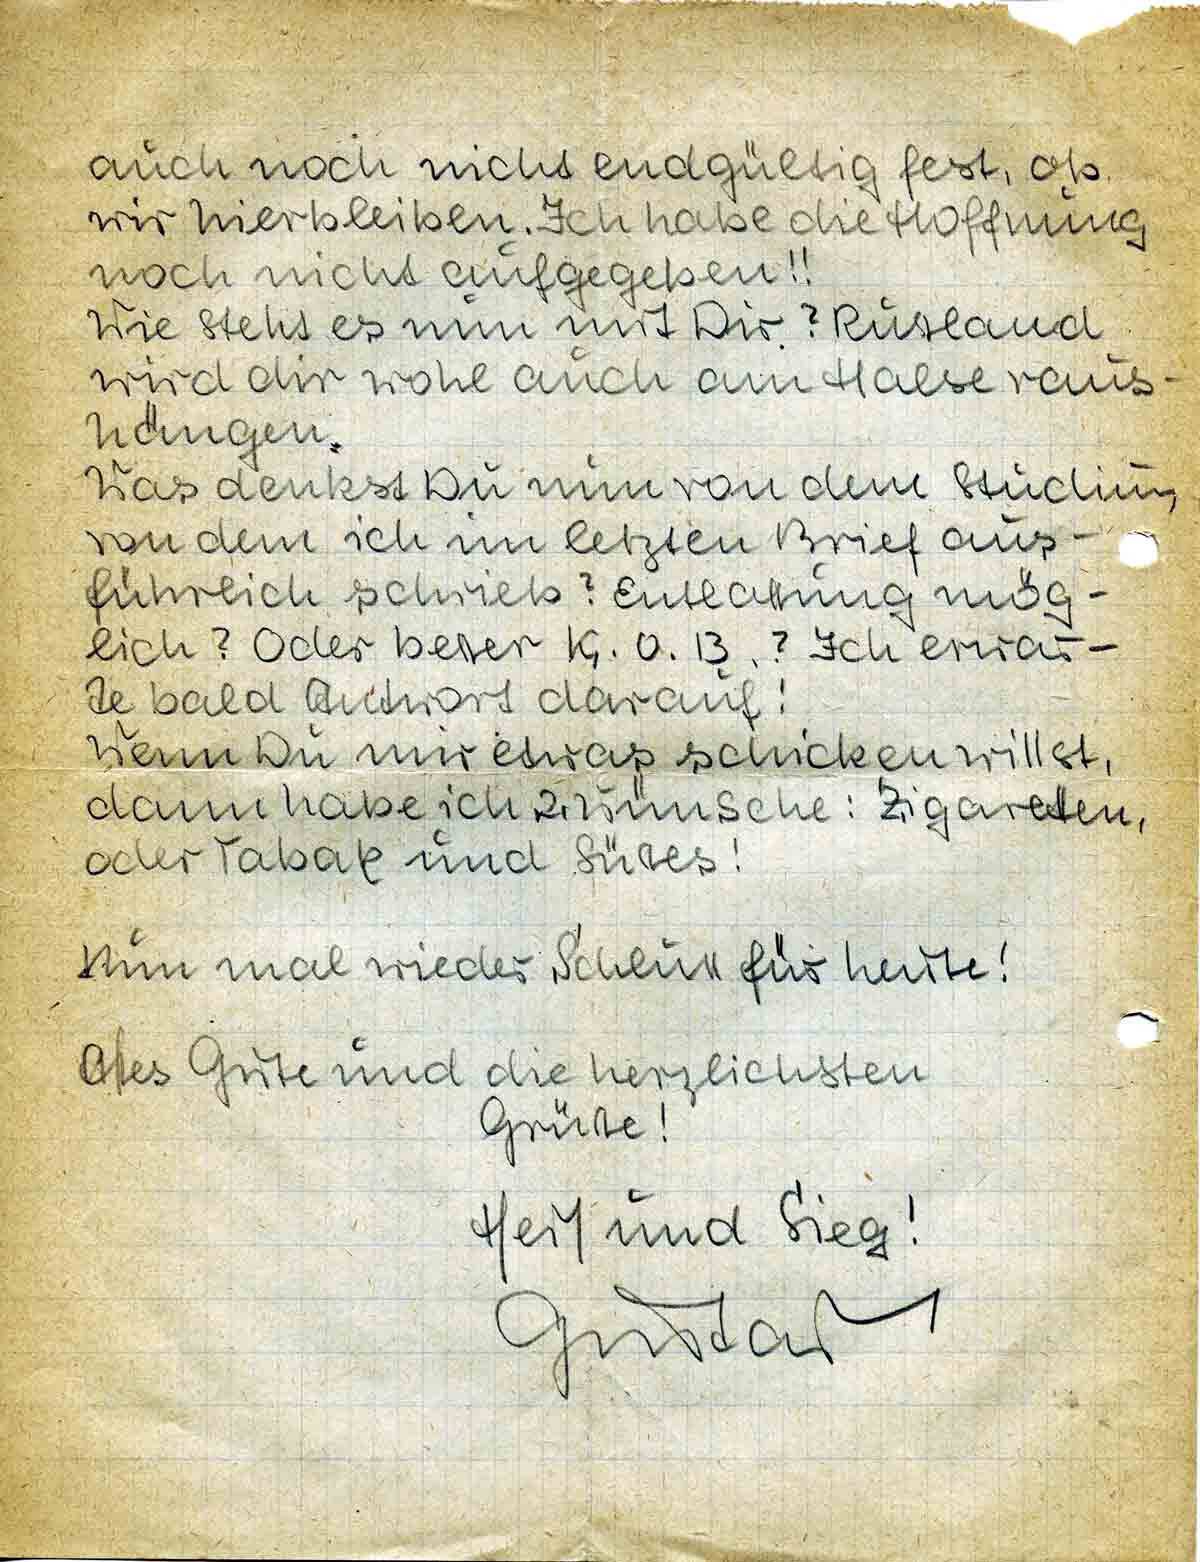 auch noch nicht endgültig fest, ob
wir hierbleiben. Ich habe die Hoffnung
noch nicht aufgegeben!!
Wie steht es nun mit Dir? Rußland
wird dir wohl auch am Halse raus-
hängen.
Was denkst Du nun von dem Studium,
von dem ich im letzten Brief aus-
führlich schrieb? Entlassung mög-
lich? Oder besser K.O.B.? Ich erwar-
te bald Antwort darauf!
Wenn Du mir etwas schicken willst,
dann habe ich 2 Wünsche: Zigaretten,
oder Tabak und Süßes!
Nun mal wieder Schluß für heute!
Alles Gute und die herzlichsten
Grüße!
Heil und Sieg!
Gustav